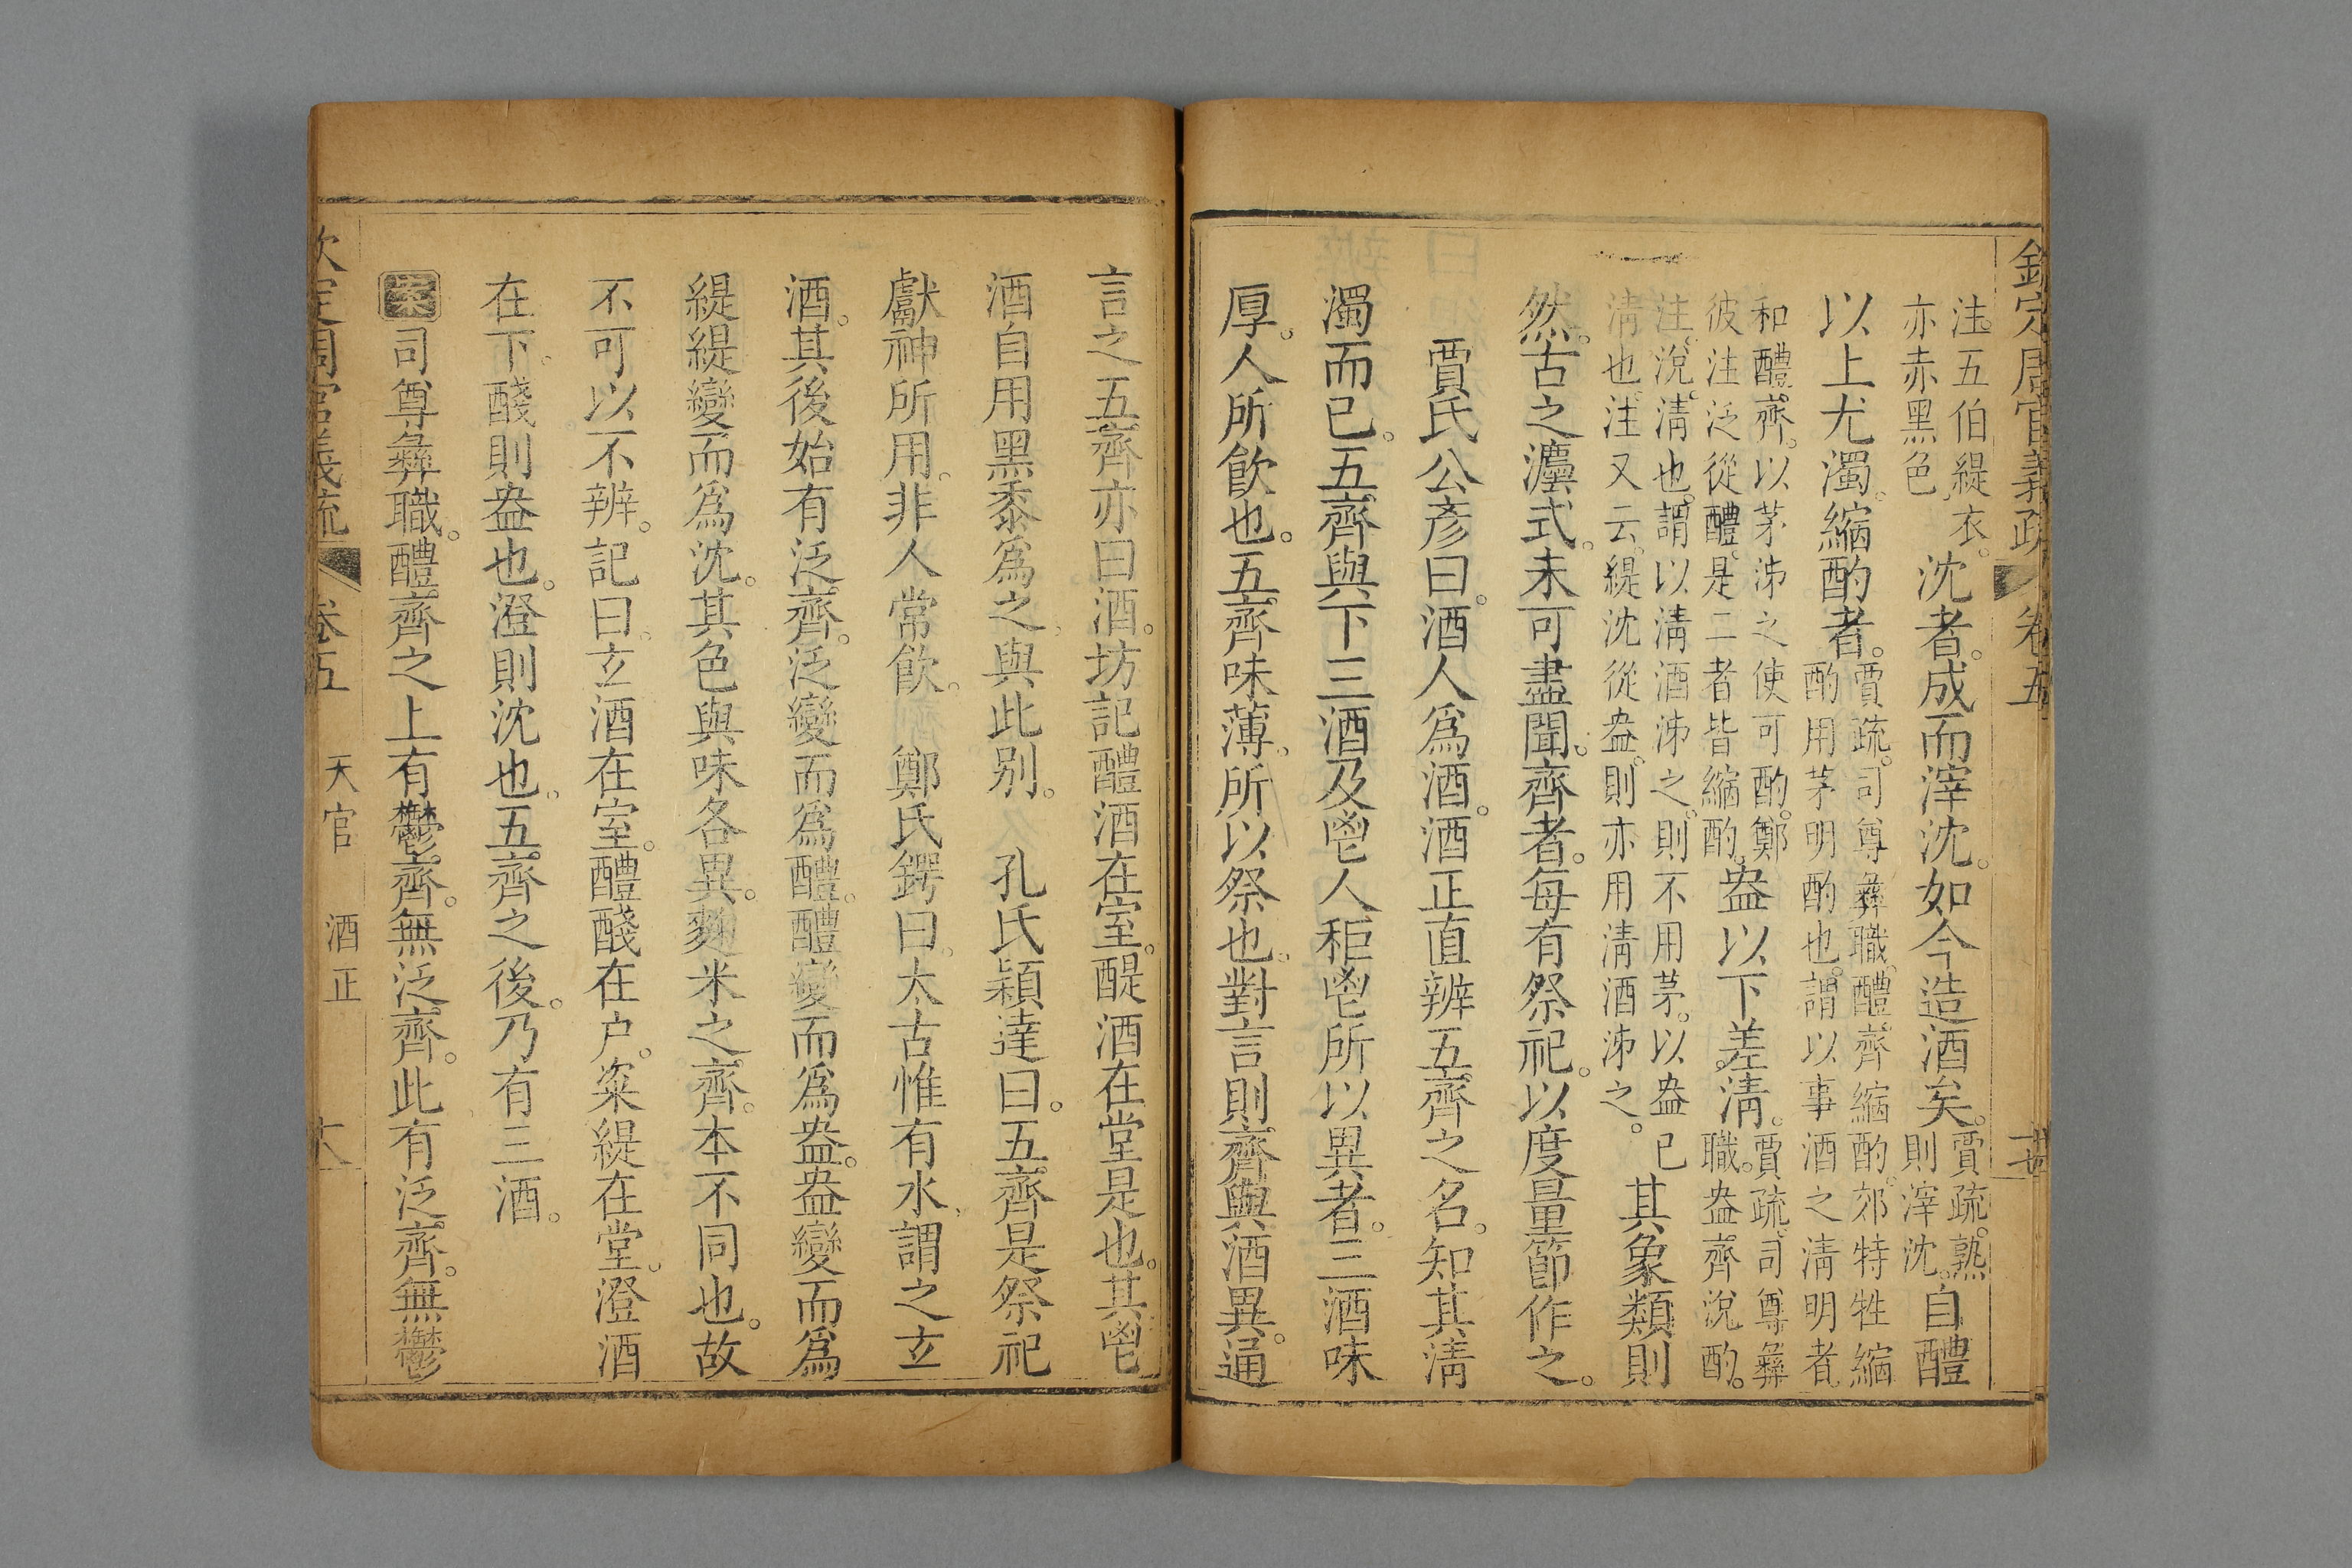 欽定周官義疏 卷五 十七
注。五伯緹衣。
亦赤黑色。
沈者。成而滓沈。如今造酒矣。
賈疏。熟
則滓沈。
自醴
以上尤濁。縮酌者。
賈疏。司尊彝職。醴齊縮酌。郊特牲縮
酌用茅明酌也。謂以事酒之淸明者
和醴齊。以茅泲之使可酌。鄭
彼注泛從醴。是二者皆縮酌。
盎以下差淸。
賈疏。司尊彝
職。盎齊涗酌。
注。涗。淸也。謂以淸酒泲之。則不用茅。以盎已
淸也。注又云。緹沈從盎。則亦用淸酒泲之。
其象類則
然。古之灋式。未可盡聞。齊者。每有祭祀。以度量節作之。
賈氏公彥曰。酒人爲酒。酒正直辨五齊之名。知其淸
濁而已。五齊與下三酒及鬯人秬鬯所以異者。三酒味
厚。人所飮也。五齊味薄。所以祭也。對言則齊與酒異。通
言之五齊亦曰酒。坊記醴酒在室。醍酒在堂是也。其鬯
酒自用黑黍爲之。與此别。 孔氏穎達曰。五齊是祭祀
獻神所用。非人常飮。 鄭氏鍔曰。太古惟有水。謂之玄
酒。其後始有泛齊。泛變而爲醴。醴變而爲盎。盎變而爲
緹緹變而爲沈。其色與味各異。麴米之齊。本不同也。故
不可以不辨。記曰。玄酒在室。醴醆在户。粢緹在堂。澄酒
在下。醆則盎也。澄則沈也。五齊之後。乃有三酒。
案 司尊彝職。醴齊之上有鬱齊。無泛齊。此有泛齊。無鬱
欽定周官義疏 卷五 天官 酒正